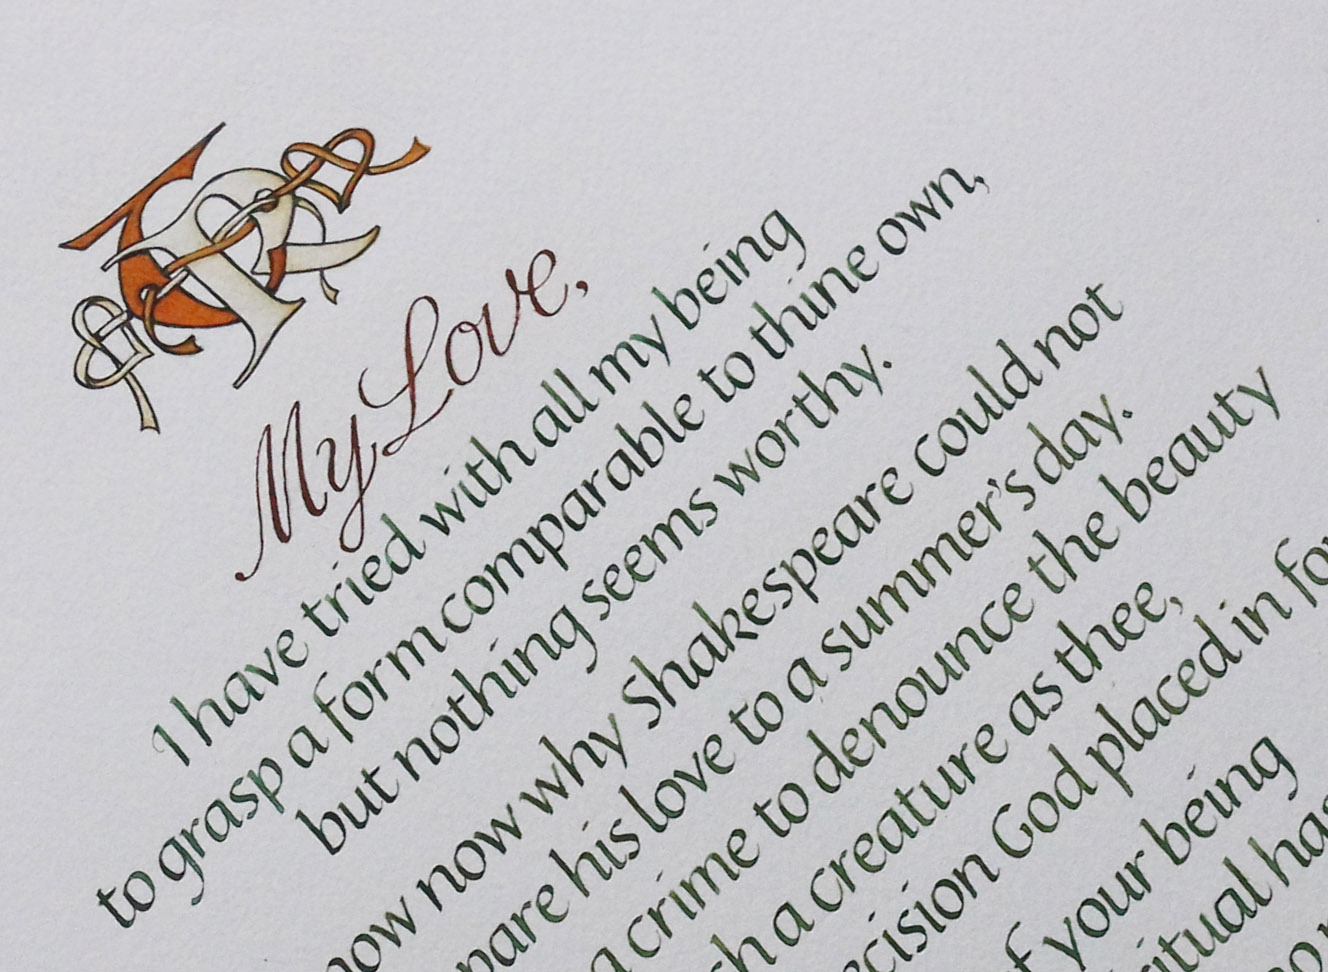 My Love,
I have tried with all my being
to grasp a form comparable to thine own,
but nothing seems worthy.
now why Shakespeare could not
his love to a summer's day.
a crime to denounce the beauty
a creature as thee,
God placed in
your being